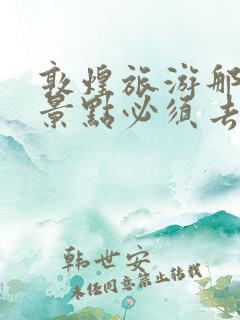 敦煌旅游那
景點必須去
韩世安
未经同意禁止转载